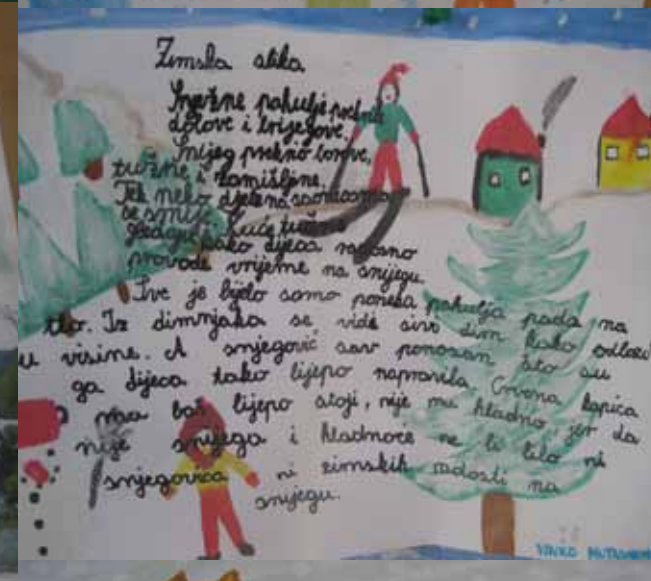 Zimska slika
Snježne pahulje prekrile
dolove i brijegove,
Snijeg prekrio borove,
tužne i zamišljene.
Tek neko dijete na saonicama
se smije. Kuće tužno
gledaju kako djeca radosno
provode vrijeme na snijegu.
Sve je bijelo samo poneka pahulja pada na
tlo. Iz dimnjaka se vidi sivi dim kako odlazi
u visine. A snjegović sav ponosan što su
ga dijeca tako lijepo napravila. Crvena kapica
baš lijepo stoji, nije mu hladno, jer da
nije snijega i hladnoće ne bi bilo ni
snjegovića ni zimskih radosti na
snijegu.
VINKO